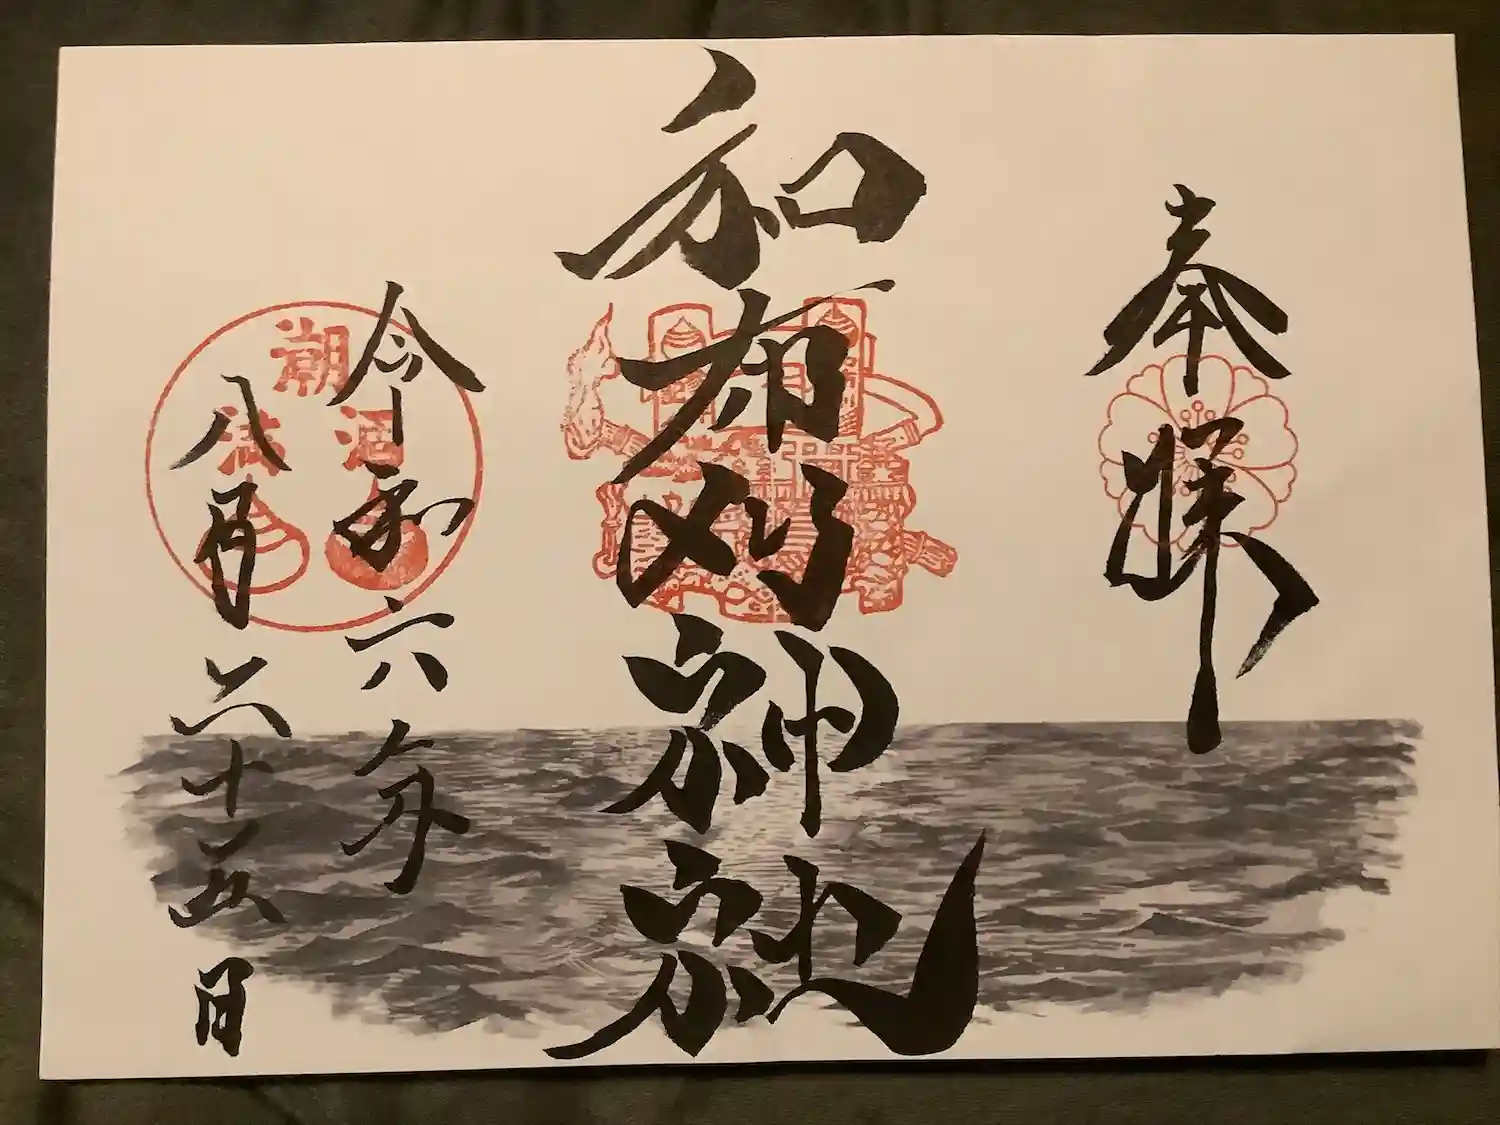 奉拝
和布刈神社
令和六年
八月二十五日
潮
涸 満